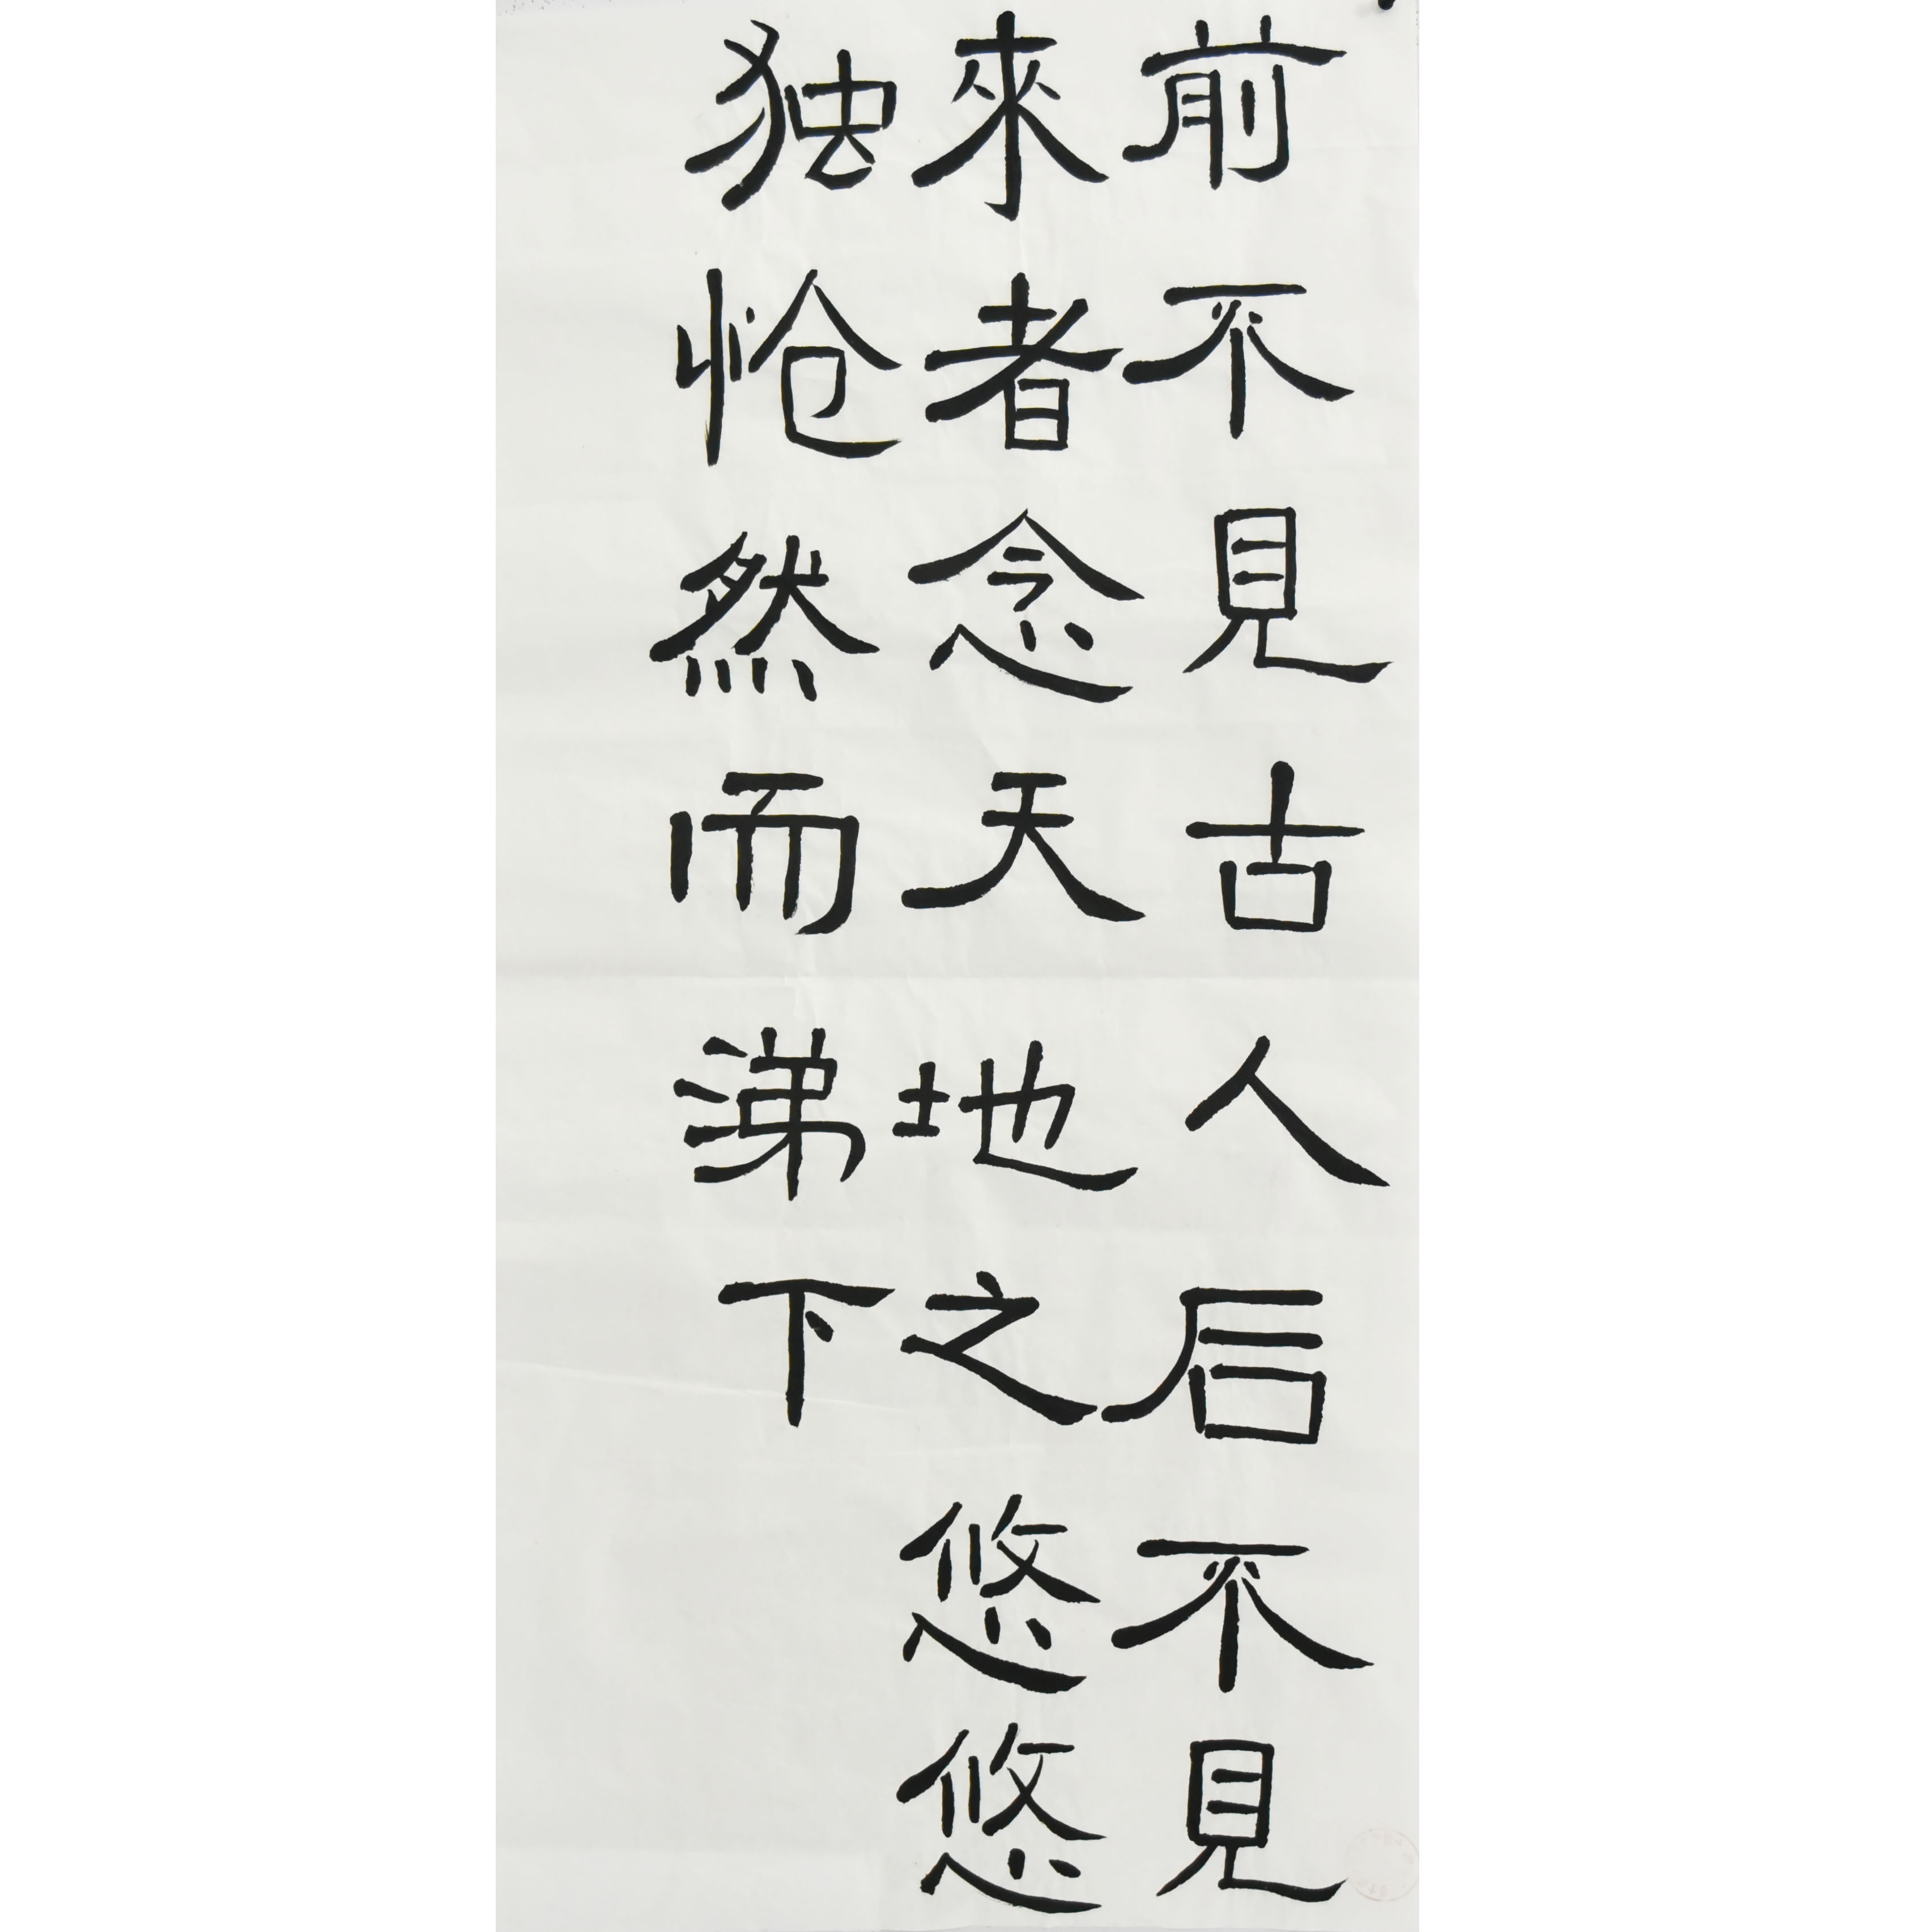 前不見古人后不見
來者念天地之悠悠
独怆然而涕下